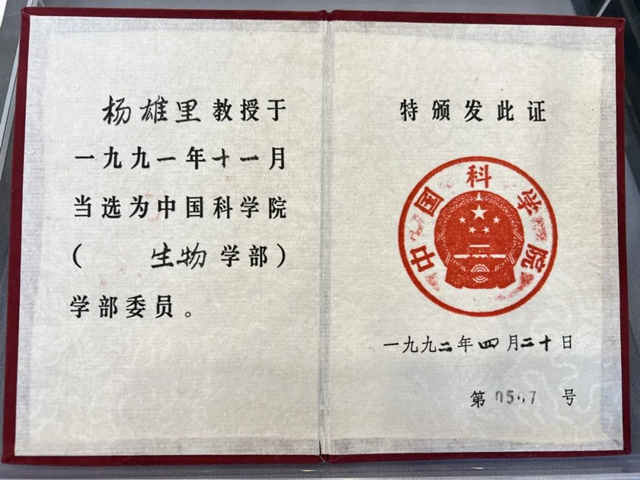 杨雄里教授于
一九九一年十一月
当选为中国科学院
（ 生物学部）
学部委员。
特颁发此证
中国科学院
一九九二年四月二十日
第 0567 号